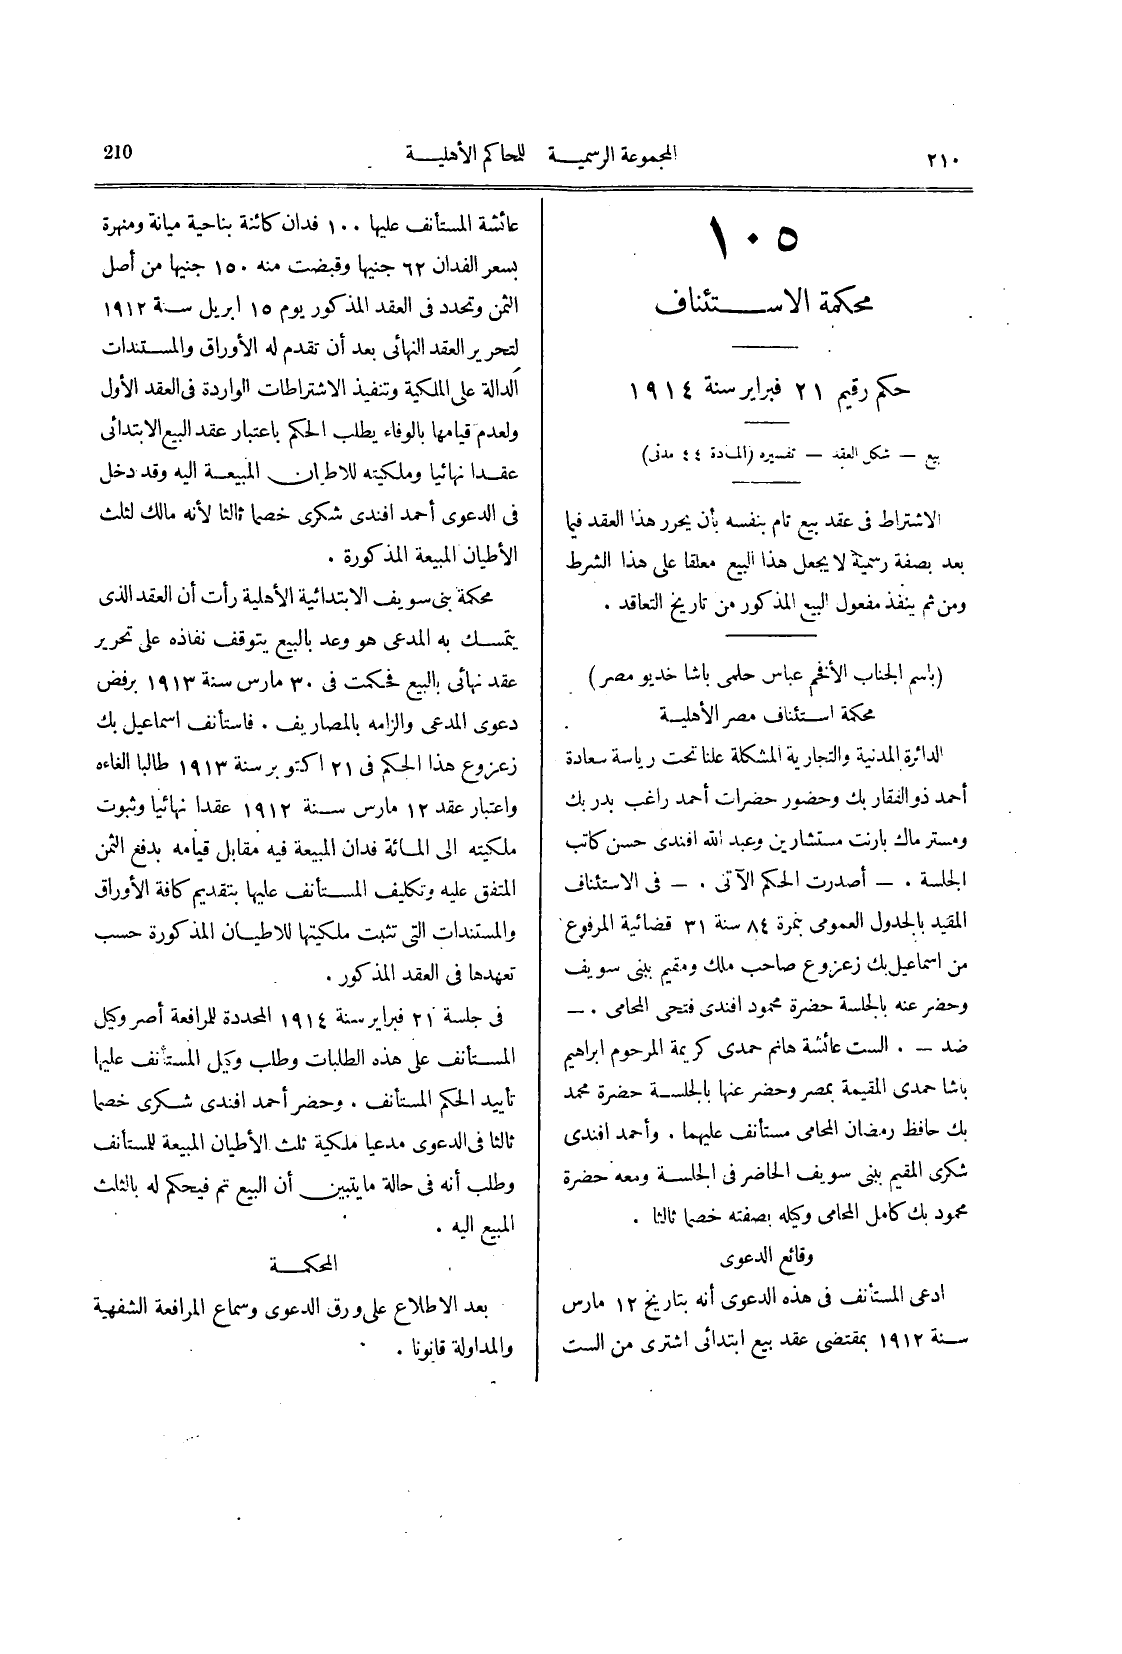 ٢١٠ المجموعة الرسمية للمحاكم الأهلية 210
١٠٥
محكمة الاستئناف
حكم رقيم ٢١ فبراير سنة ١٩١٤
بيع — شكل العقد — تفسيره (المادة ٤٤ مدنى)
الاشتراط فى عقد بيع تام بنفسه بأن يحرر هذا العقد فيما
بعد بصفة رسمية لا يجعل هذا البيع معلقا على هذا الشرط
ومن ثم ينفذ مفعول البيع المذكور من تاريخ التعاقد .
(باسم الجناب الأفخم عباس حلمى باشا خديو مصر)
محكمة استئناف مصر الأهلية
الدائرة المدنية والتجارية المشكلة علنا تحت رياسة سعادة
أحمد ذو الفقار بك وحضور حضرات أحمد راغب بدر بك
ومستر ماك بارنت مستشارين وعبد الله افندى حسن كاتب
الجلسة . — أصدرت الحكم الآتى . — فى الاستئناف
المقيد بالجدول العمومى بنمرة ٨٤ سنة ٣١ قضائية المرفوع
من اسماعيل بك زعزوع صاحب ملك ومقيم ببنى سويف
وحضر عنه بالجلسة حضرة محمود افندى فتحى المحامى . —
ضد — . الست عائشة هانم حمدى كريمة المرحوم ابراهيم
باشا حمدى المقيمة بمصر وحضر عنها بالجلسة حضرة محمد
بك حافظ رمضان المحامى مستأنف عليهما . وأحمد افندى
شكرى المقيم ببنى سويف الحاضر فى الجلسة ومعه حضرة
محمود بك كامل المحامى وكيله بصفته خصما ثالثا .
وقائع الدعوى
ادعى المستأنف فى هذه الدعوى أنه بتاريخ ١٢ مارس
سنة ١٩١٢ بمقتضى عقد بيع ابتدائى اشترى من الست
عائشة المستأنف عليها ١٠٠ فدان كائنة بناحية ميانة ومنهرة
بسعر الفدان ٦٢ جنيها وقبضت منه ١٥٠ جنيها من أصل
الثمن وتحدد فى العقد المذكور يوم ١٥ ابريل سنة ١٩١٢
لتحرير العقد النهائى بعد أن تقدم له الأوراق والمستندات
الدالة على الملكية وتنفيذ الاشتراطات الواردة فى العقد الأول
ولعدم قيامها بالوفاء يطلب الحكم باعتبار عقد البيع الابتدائى
عقدا نهائيا وملكيته للاطيان المبيعة اليه وقد دخل
فى الدعوى أحمد افندى شكرى خصما ثالثا لأنه مالك لثلث
الأطيان المبيعة المذكورة .
محكمة بنى سويف الابتدائية الأهلية رأت أن العقد الذى
يتمسك به المدعى هو وعد بالبيع يتوقف نفاذه على تحرير
عقد نهائى بالبيع فحكمت فى ٣٠ مارس سنة ١٩١٣ برفض
دعوى المدعى والزامه بالمصاريف . فاستأنف اسماعيل بك
زعزوع هذا الحكم فى ٢١ اكتوبر سنة ١٩١٣ طالبا الغاءه
واعتبار عقد ١٢ مارس سنة ١٩١٢ عقدا نهائيا وثبوت
ملكيته الى المائة فدان المبيعة فيه مقابل قيامه بدفع الثمن
المتفق عليه وتكليف المستأنف عليها بتقديم كافة الأوراق
والمستندات التى تثبت ملكيتها للاطيان المذكورة حسب
تعهدها فى العقد المذكور .
فى جلسة ٢١ فبراير سنة ١٩١٤ المحددة للمرافعة أصر وكيل
المستأنف على هذه الطلبات وطلب وكيل المستأنف عليها
تأييد الحكم المستأنف . وحضر أحمد افندى شكرى خصما
ثالثا فى الدعوى مدعيا ملكية ثلث الأطيان المبيعة للمستأنف
وطلب أنه فى حالة ما يتبين أن البيع تم فيحكم له بالثلث
المبيع اليه .
المحكمة
بعد الاطلاع على ورق الدعوى وسماع المرافعة الشفهية
والمداولة قانونا .